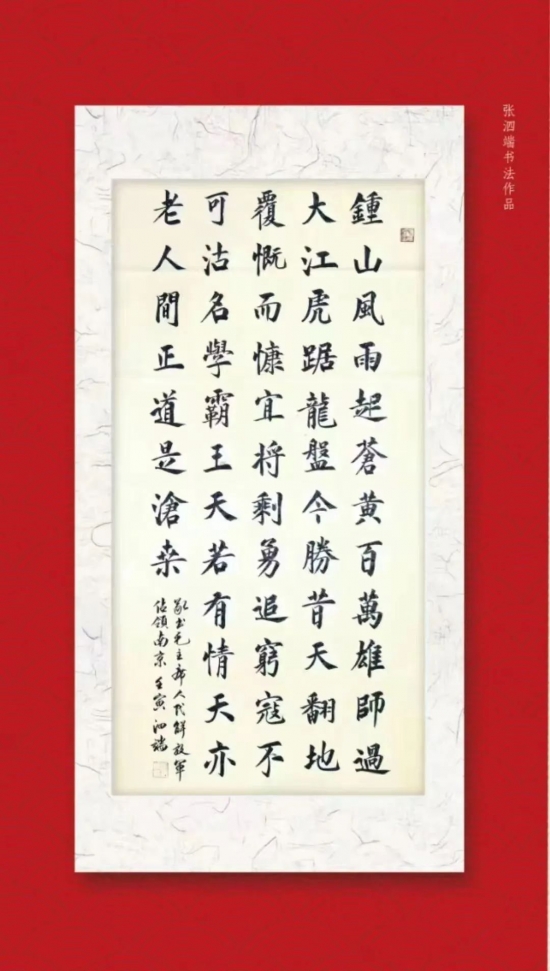 张泗端书法作品
鍾山風雨起蒼黄百萬雄師過
大江虎踞龍盤今勝昔天翻地
覆慨而慷宜将剩勇追窮寇不
可沽名學霸王天若有情天亦
老人間正道是滄桒
敬书毛主席人民解放軍
佔領南京 壬寅 泗端